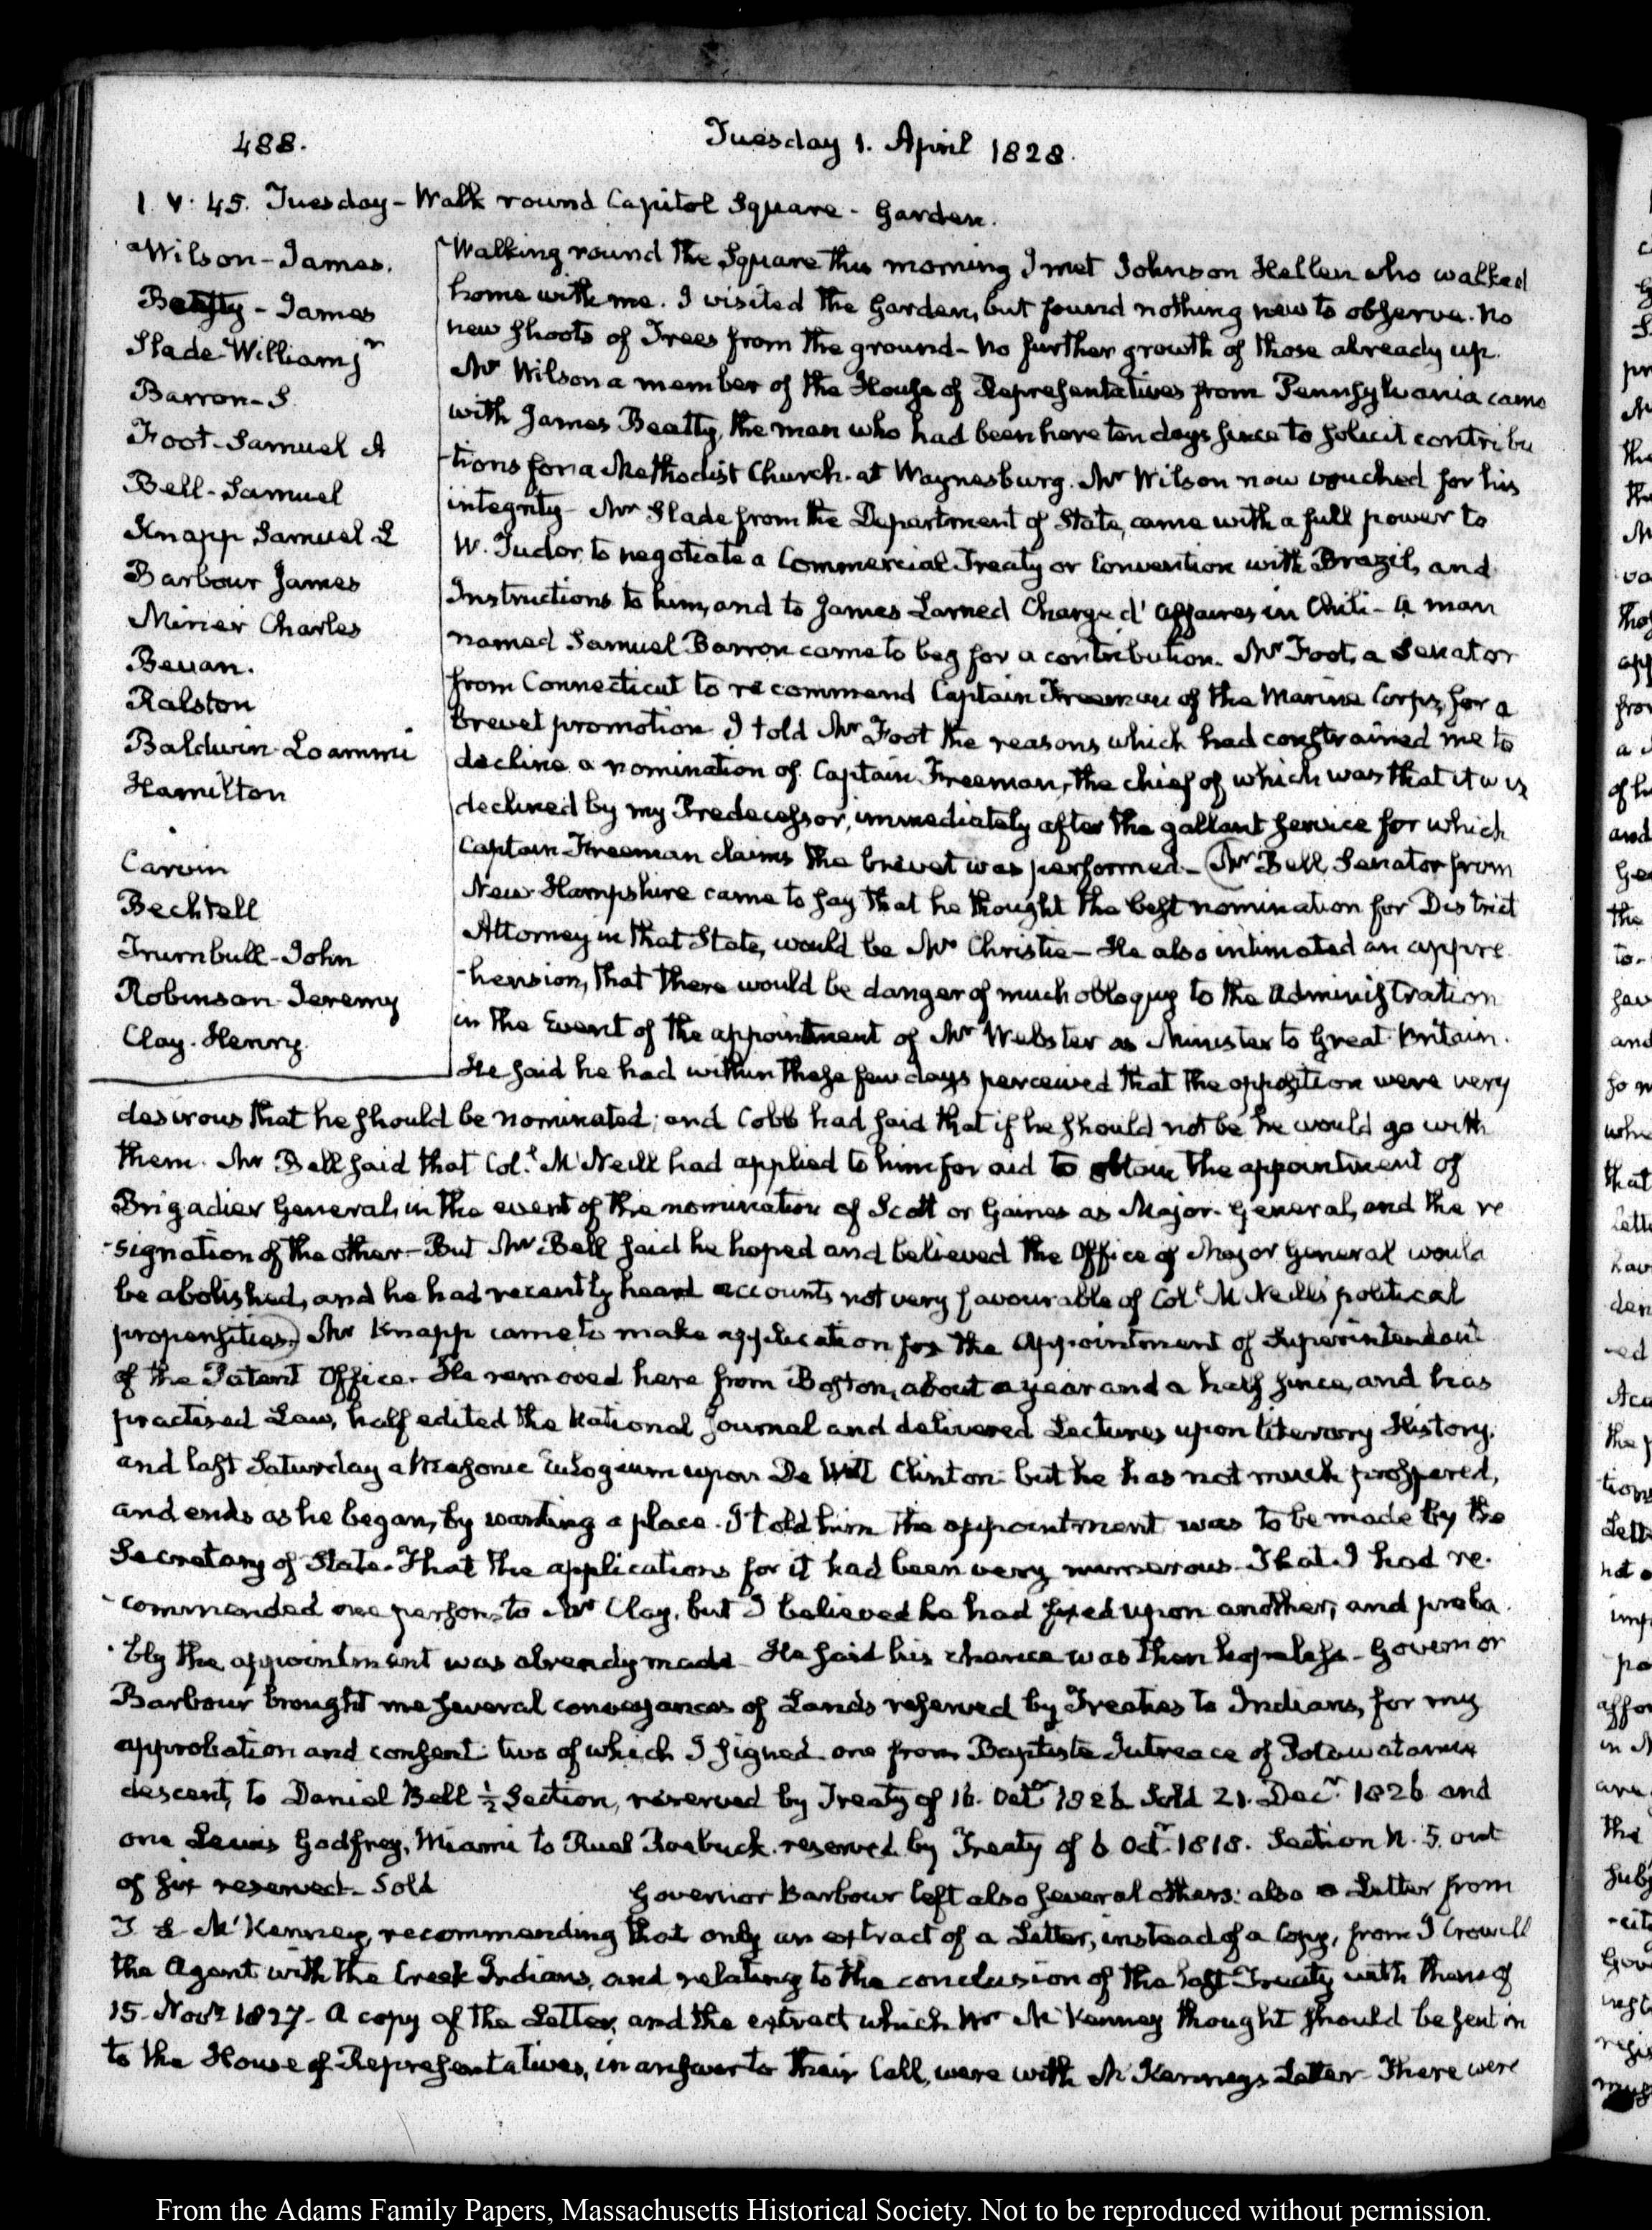 488.
Tuesday 1. April 1828.
1. V: 45. Tuesday - Walk round Capitol Square - Garden.
Wilson - James.
Beatty - James
Slade William jr
Barron - S
Foot - Samuel A
Bell - Samuel
Knapp Samuel L
Barbour James
Miner Charles
Bevan.
Ralston
Baldwin - Loammi
Hamilton
Carvin
Bechtell
Trumbull - John
Robinson - Jeremy
Clay - Henry.
Walking round the Square this morning I met Johnson Hellen who walked
home with me. I visited the Garden, but found nothing new to observe. No
new shoots of Trees from the ground - No further growth of those already up.
Mr Wilson a member of the House of Representatives from Pennsylvania came
with James Beatty, the man who had been here ten days since to solicit contribu
-tions for a Methodist Church at Waynesburg. Mr Wilson now vouched for his
integrity - Mr Slade from the Department of State, came with a full power to
W. Tudor, to negotiate a Commercial Treaty or Convention with Brazil, and
Instructions to him, and to James Larned Chargé d'Affaires in Chili - A man
named Samuel Barron came to beg for a contribution. Mr Foot, a Senator
from Connecticut to recommend Captain Freeman of the Marine Corps, for a
brevet promotion. I told Mr Foot the reasons which had constrained me to
decline a nomination of Captain Freeman, the chief of which was that it was
declined by my Predecessor, immediately after the gallant service for which
Captain Freeman claims the brevet was performed - (Mr Bell, Senator from
New Hampshire came to say that he thought the best nomination for District
Attorney in that State, would be Mr Christie - He also intimated an appre
-hension, that there would be danger of much obloquy to the Administration
in the Event of the appointment of Mr Webster as Minister to Great Britain.
He said he had within these few days perceived that the opposition were very
desirous that he should be nominated; and Cobb had said that if he should not be he would go with
them. Mr Bell said that Col.l McNeill had applied to him for aid to obtain the appointment of
Brigadier General, in the event of the nomination of Scott or Gaines as Major-General, and the re
-signation of the other - But Mr Bell said he hoped and believed the Office of Major General would
be abolished, and he had recently heard accounts not very favourable of Col.l McNeill's political
propensities.) Mr Knapp came to make application for the Appointment of Superintendent
of the Patent Office. He removed here from Boston, about a year and a half since, and has
practised Law, half edited the National Journal and delivered Lectures upon literary History,
and last Saturday a Masonic Eulogium upon De Witt Clinton. but he has not much prospered,
and ends as he began, by wanting a place. I told him the appointment was to be made by the
Secretary of State. That the applications for it had been very numerous. That I had re-
-commended one person to Mr Clay, but I believed he had fixed upon another, and proba
-bly the appointment was already made - He said his chance was then hopeless - Governor
Barbour brought me several conveyances of Lands reserved by Treaties to Indians, for my
approbation and consent: two of which I signed. one from Baptiste Jutreace of Potawatamie
descent, to Daniel Bell ½ Section, reserved by Treaty of 16. Octr 1826 Sold 21. Decr 1826 and
one Lewis Godfrey, Miami to Ruel Roebuck. reserved by Treaty of 6 Octr 1818. Section N. 5. out
of six reserved - Sold Governor Barbour left also several others: also a Letter from
T L McKenney, recommending that only an extract of a Letter, instead of a Copy, from J Crowell
the Agent with the Creek Indians, and relating to the conclusion of the last Treaty with them of
15. Novr 1827 - A copy of the Letter, and the extract which Mr McKenney thought should be sent in
to the House of Representatives, in answer to their Call, were with McKenney's Letter - There were
From the Adams Family Papers, Massachusetts Historical Society. Not to be reproduced without permission.